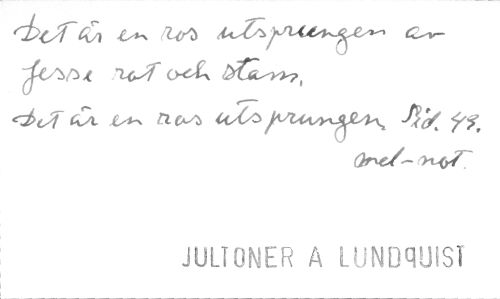 Det är en ros utsprungen av
Jesse rot och stam.
Det är en ros utsprungen. Sid. 49.
mel-not.
JULTONER A LUNDQUIST